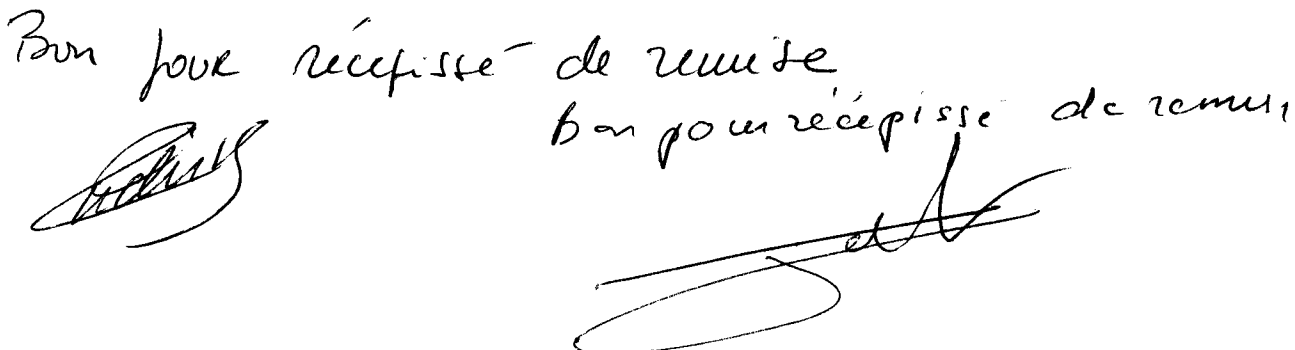 Bon pour récépissé de remise
bon pour récépissé de remise